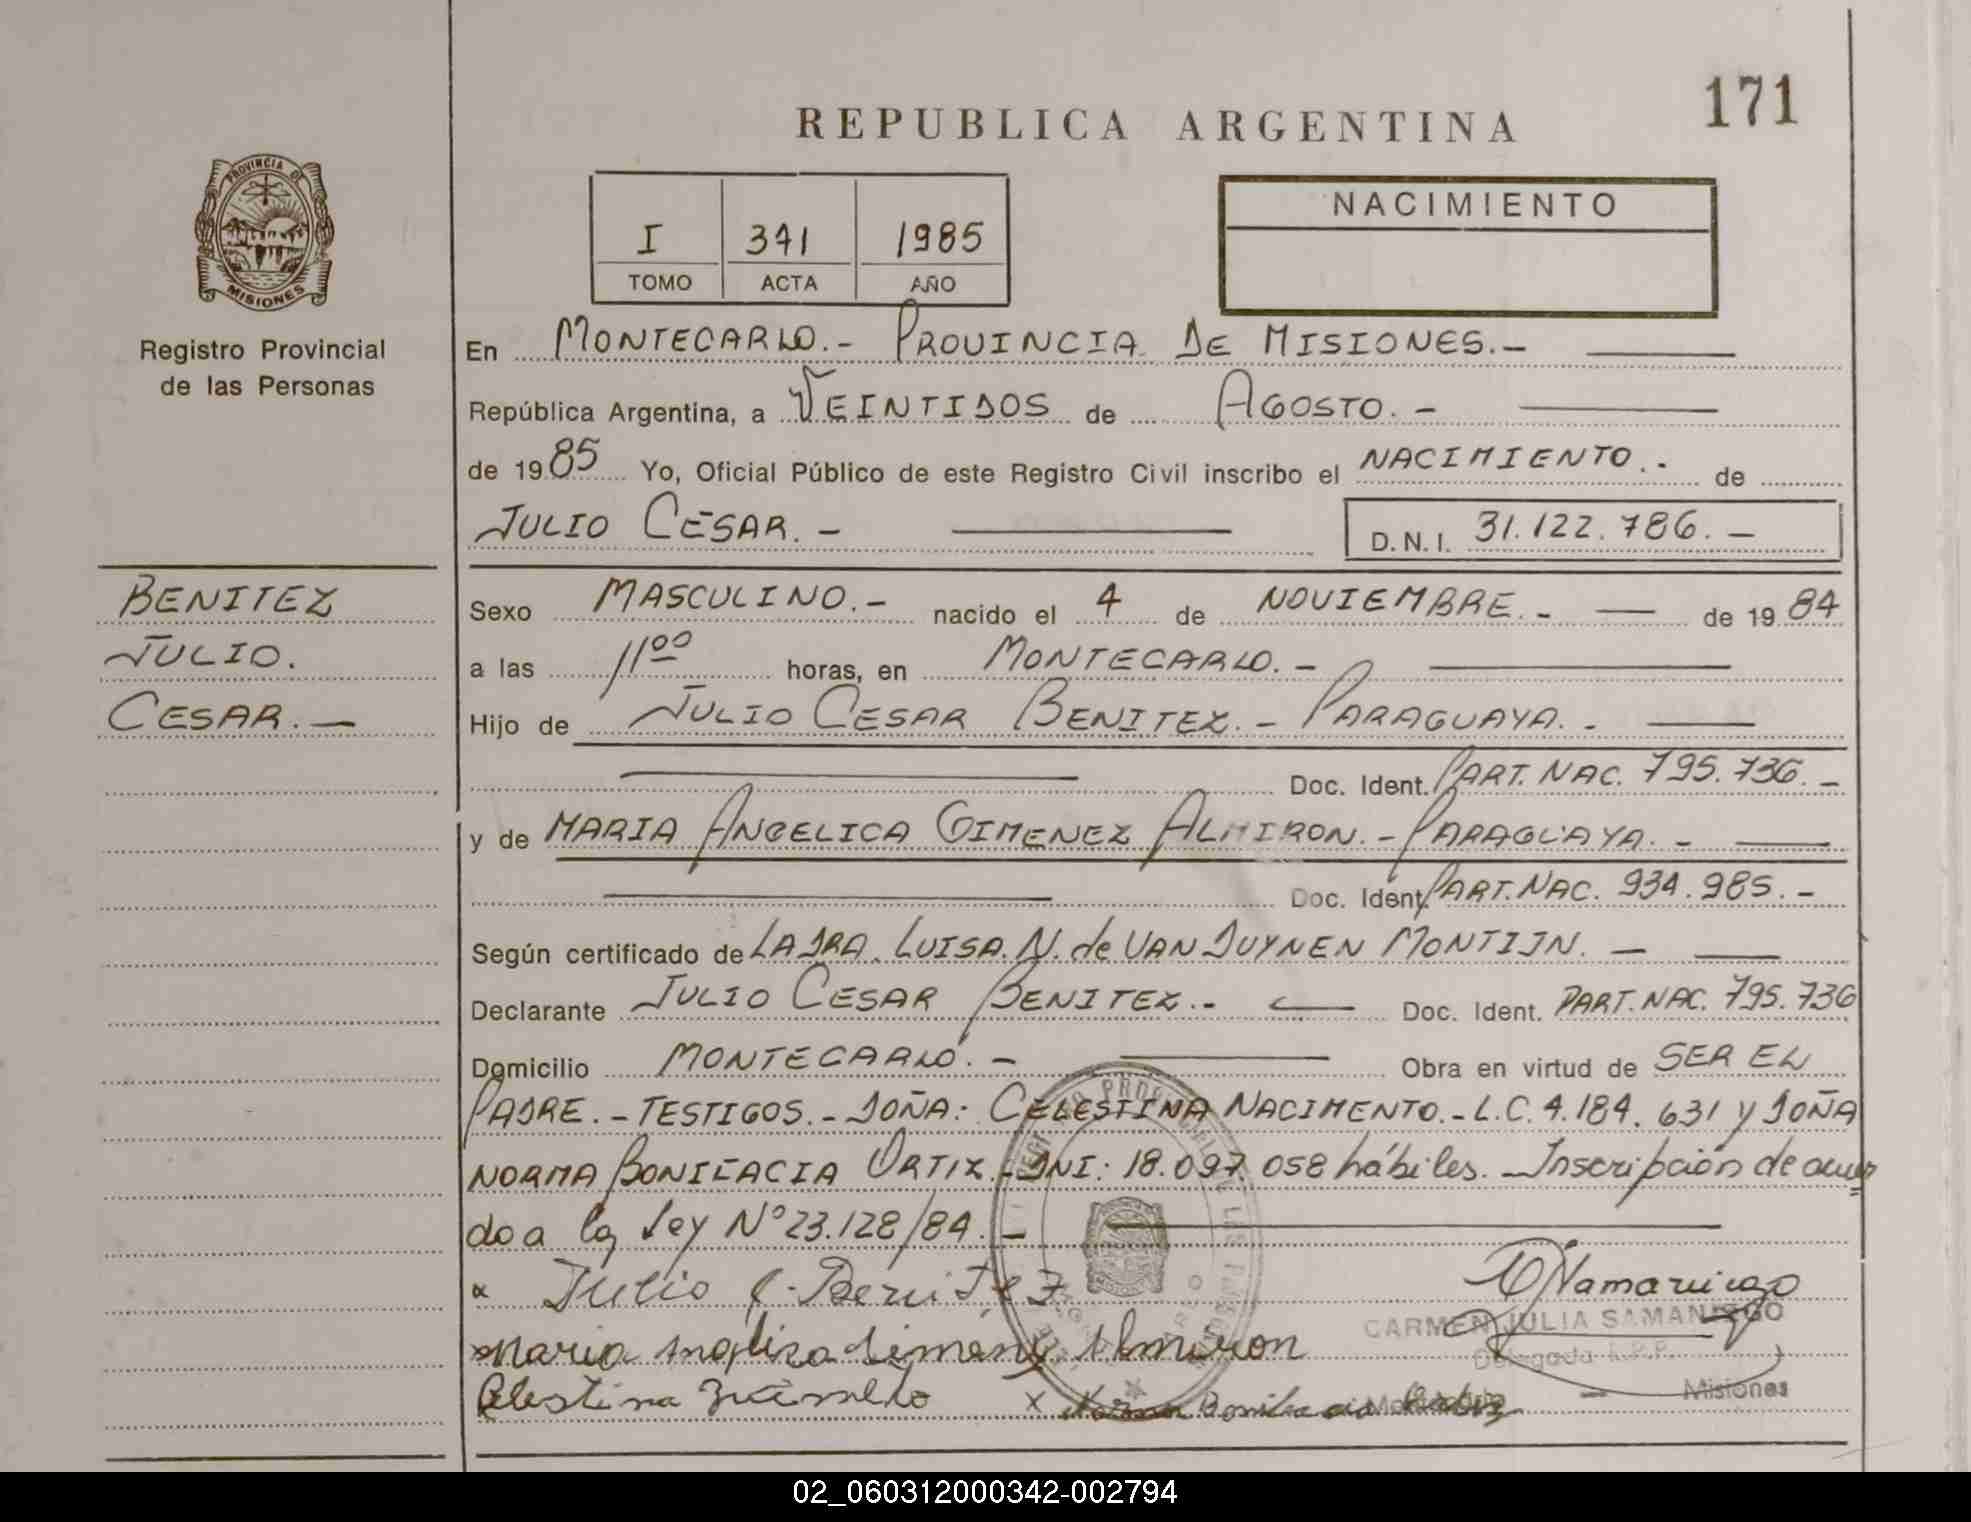 171
REPUBLICA ARGENTINA
PROVINCIA DE
MISIONES
Registro Provincial
de las Personas
I 341 1985
TOMO ACTA AÑO
NACIMIENTO
En MONTECARLO.- PROVINCIA DE MISIONES.-
República Argentina, a VEINTIDOS de AGOSTO.-
de 1985 Yo, Oficial Público de este Registro Civil inscribo el NACIMIENTO.. de
JULIO CESAR.- D.N.I. 31.122.786.-
BENITEZ
JULIO.
CESAR.-
Sexo MASCULINO.- nacido el 4 de NOVIEMBRE.- de 1984
a las 11 00 horas, en MONTECARLO.-
Hijo de JULIO CESAR BENITEZ.- PARAGUAYA.-
Doc. Ident. PART. NAC. 795.736.-
y de MARIA ANGELICA GIMENEZ ALMIRON.- PARAGUAYA.-
Doc. Ident. PART. NAC. 934.985.-
Según certificado de LA DRA. LUISA. N. de VAN DUYNEN MONTIJN.-
Declarante JULIO CESAR BENITEZ.- Doc. Ident. PART. NAC. 795.736
Domicilio MONTECARLO.- Obra en virtud de SER EL
PADRE.- TESTIGOS.- DOÑA: CELESTINA NACIMENTO.- L.C. 4.184.631 y DOÑA
NORMA BONIFACIA ORTIZ.- DNI: 18.097.058 hábiles. Inscripción de acuer
do a la Ley Nº 23.128/84.-
x Julio C. Benitez
x Maria Angelica Gimenez Almiron
Celestina x Norma Bonifacia Ortiz
CARMEN JULIA SAMANIEGO
Delegada R.P.P.
Misiones
02_060312000342-002794